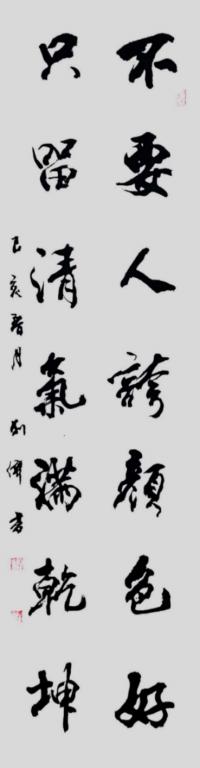 不要人誇顔色好
只留清氣滿乾坤
己亥春月 劉偉書